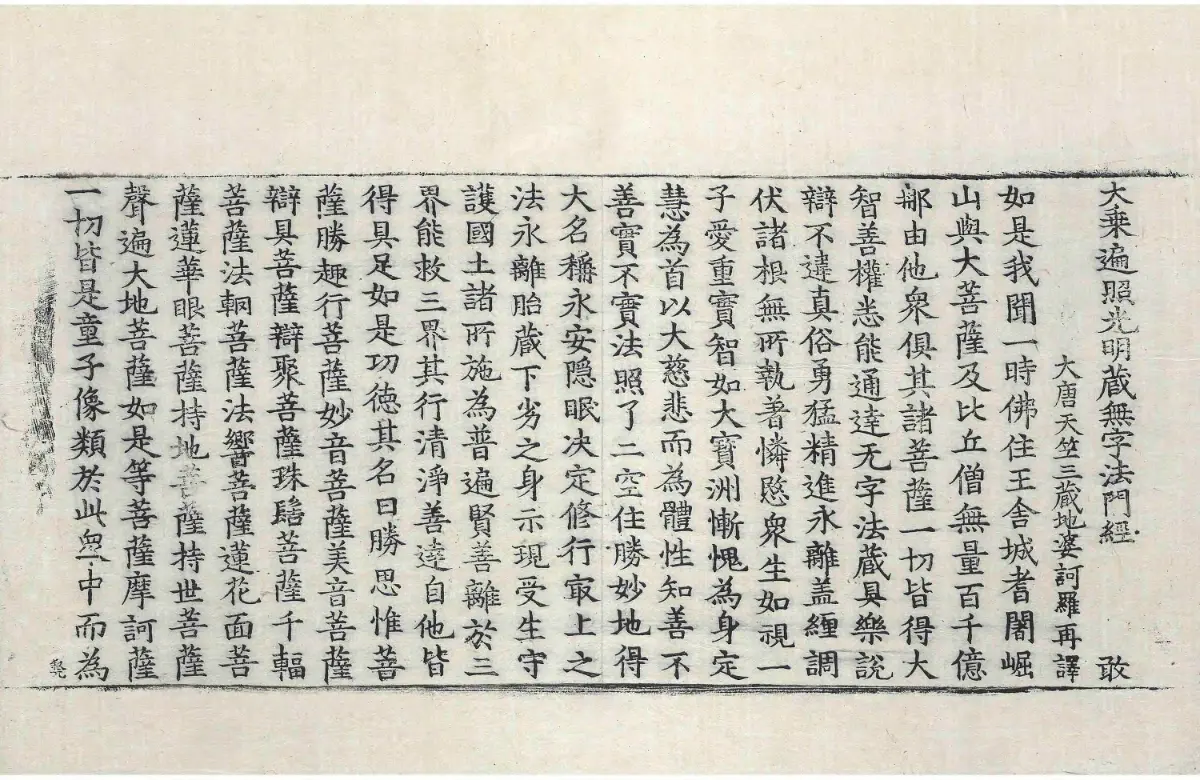 大乗遍照光明蔵無字法門經 敢
大唐天竺三蔵地婆訶羅再譯
如是我聞一時佛住王舎城耆闍崛
山與大菩薩及比丘僧無量百千億
那由他衆俱其諸菩薩一切皆得大
智善權悉能通達无字法蔵具樂說
辯不違真俗勇猛精進永離盖纏調
伏諸根無所執著憐愍衆生如視一
子愛重寶智如大寶洲慚愧為身定
慧為首以大慈悲而為體性知善不
善實不實法照了二空住勝妙地得
大名稱永安隱眠决定修行取上之
法永離胎蔵下劣之身示現受生守
護國土諸所施為普遍賢善離於三
界能救三界其行清淨善達自他皆
得具足如是功德其名曰勝思惟菩
薩勝趣行菩薩妙音菩薩美音菩薩
辯具菩薩辯聚菩薩珠髻菩薩千輻
菩薩法輞菩薩法響菩薩蓮花面菩
薩蓮華眼菩薩持地菩薩持世菩薩
聲遍大地菩薩如是等菩薩摩訶薩
一切皆是童子像類於此衆中而為